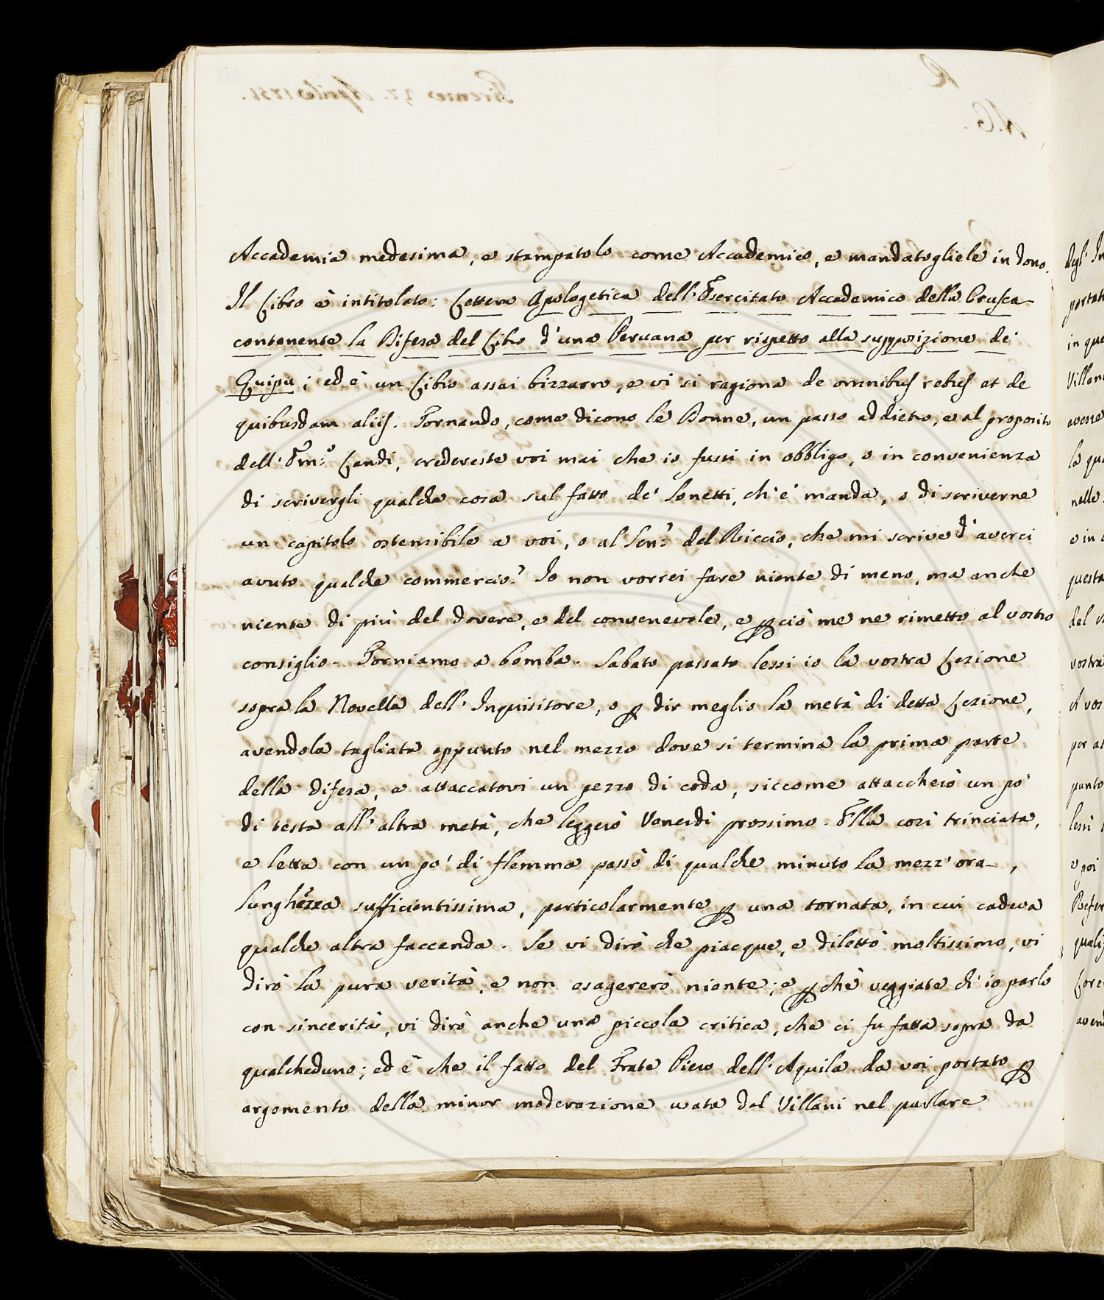 Accademia medesima, e stampatolo come Accademico, e mandatogliele in dono.
Il Libro è intitolato: Lettera Apologetica dell'Esercitato Accademico della Crusca
contenente la Difesa del Libro d'una Peruana per rispetto alla supposizione de'
Quipu; ed è un Libro assai bizzarro, e vi si ragiona de omnibus rebus et de
quibusdam aliis. Tornando, come dicono le Donne, un passo addietro, e al proposito
dell'Em.º Landi, credereste voi mai che io fussi in obbligo, o in convenienza
di scrivergli qualche cosa sul fatto de' Sonetti, ch'e' manda, o di scriverne
un capitolo ostensibile a voi, o al Sen.º del Riccio, che mi scrive d'averci
avuto qualche commercio? Io non vorrei fare niente di meno, ma anche
niente di più del dovere, e del convenevole, e p ciò me ne rimetto al vostro
consiglio. Torniamo a bomba. Sabato passato lessi io la vostra Lezione
sopra la Novella dell'Inquisitore, o p dir meglio la metà di detta Lezione,
avendola tagliata appunto nel mezzo dove si termina la prima parte
della difesa, e attaccatovi un pezzo di coda, siccome attaccherò un po'
di testa all'altra metà, che leggerò Venerdì prossimo. Ella così trinciata,
e letta con un po' di flemma passò di qualche minuto la mezz'ora,
lunghezza sufficientissima, particolarmente p una tornata, in cui cadeva
qualche altra faccenda. Se vi dirò che piacque, e dilettò moltissimo, vi
dirò la pura verità, e non esagererò niente; e p chè veggiate ch'io parlo
con sincerità, vi dirò anche una piccola critica, che ci fu fatta sopra da
qualcheduno; ed è che il fatto del Frate Piero dell'Aquila da voi portato p
argomento della minor moderazione usata dal Villani nel parlare